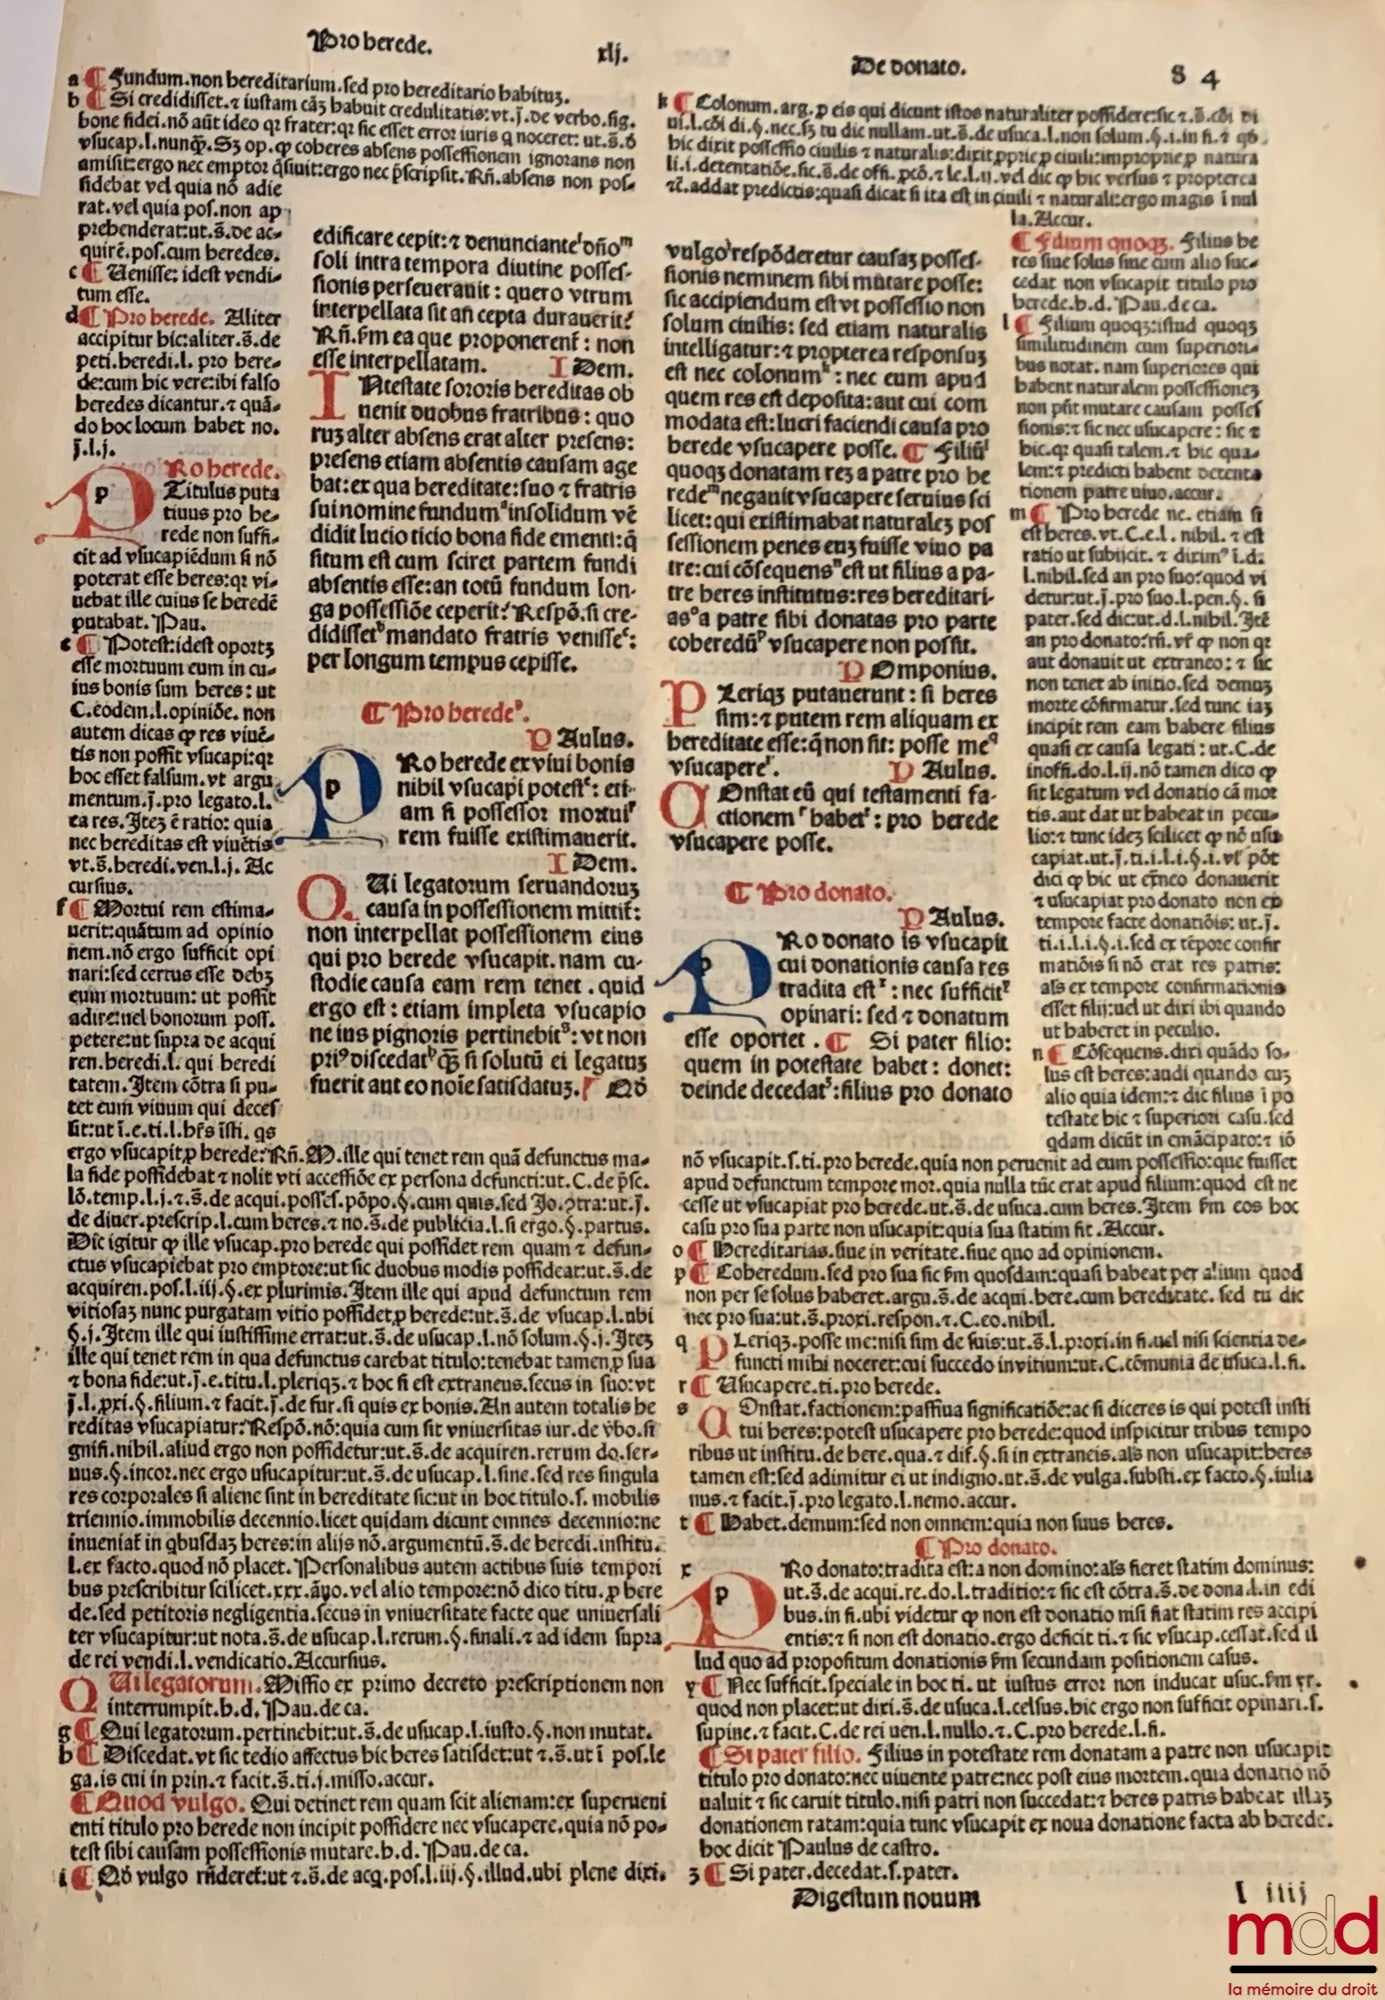 Pro herede.
xlj.
De donato.
84
a ¶ Fundum. non hereditarium. sed pro hereditario habituʒ.
b ¶ Si credidisset. ⁊ iustam cãʒ habuit credulitatis: vt. j̄. de verbo. sig.
bone fidei. nõ aũt ideo qꝛ frater: qꝛ sic esset error iuris q noceret: ut. s̄. d̄
vsucap. l. nunq̃. Sʒ op. ꝙ coheres absens possessionem ignorans non
amisit: ergo nec emptor q̃siuit: ergo nec p̃scripsit. Rñ. absens non pos-
sidebat vel quia nõ adie
rat. vel quia pos. non ap
prehenderat: ut. s̄. de ac-
quirẽ. pos. cum heredes.
c ¶ Uenisse: idest vendi-
tum esse.
d ¶ Pro herede. Aliter
accipitur hic: aliter. s̄. de
peti. heredi. l. pro here-
de: cum hic vere: ibi falso
heredes dicantur. ⁊ quã-
do hoc locum habet no.
j̄. l. j.
PRo herede.
Titulus puta
tiuus pro he-
rede non suffi-
cit ad vsucapiẽdum si nõ
poterat esse heres: qꝛ vi-
uebat ille cuius se heredẽ
putabat. Pau.
e ¶ Potest: idest oportʒ
esse mortuum eum in cu-
ius bonis sum heres: ut
C. eodem. l. opiniõe. non
autem dicas ꝙ res viuẽ-
tis non possit vsucapi: qꝛ
hoc esset falsum. vt argu
mentum. j̄. pro legato. l.
ea res. Iteʒ ẽ ratio: quia
nec hereditas est viuẽtis
vt. s̄. heredi. ven. l. j. Ac
cursius.
f ¶ Mortui rem estima-
uerit: quãtum ad opinio
nem. nõ ergo sufficit opi
nari: sed certus esse debʒ
eum mortuum: ut possit
adire: uel bonorum poss.
petere: ut supra de acqui
ren. heredi. l. qui heredi
tatem. Item cõtra si pu-
tet eum viuum qui deces
sit: ut ĩ. e. ti. l. hr̃s ĩsti. qs
ergo vsucapit ꝑ herede: Rñ. M. ille qui tenet rem quã defunctus ma-
la fide possidebat ⁊ nolit vti accessiõe ex persona defuncti: ut. C. de p̃sc.
lõ. temp. l. j. ⁊. s̄. de acqui. posses. põpo. §. cum quis. sed Jo. ɔtra: ut. j̄.
de diuer. prescrip. l. cum heres. ⁊ no. s̄. de publicia. l. si ergo. §. partus.
Dic igitur ꝙ ille vsucap. pro herede qui possidet rem quam ⁊ defun-
ctus vsucapiebat pro emptore: ut sic duobus modis possideat: ut. s̄. de
acquiren. pos. l. iij. §. ex plurimis. Item ille qui apud defunctum rem
vitiosaʒ nunc purgatam vitio possidet ꝑ herede: ut. s̄. de vsucap. l. ubi
§. j. Item ille qui iustissime errat: ut. s̄. de usucap. l. nõ solum. §. j. Iteʒ
ille qui tenet rem in qua defunctus carebat titulo: tenebat tamen ꝑ sua
⁊ bona fide: ut. j̄. e. titu. l. pleriqʒ. ⁊ hoc si est extraneus. secus in suo: vt
j̄. l. ꝓxi. §. filium. ⁊ facit. j̄. de fur. si quis ex bonis. An autem totalis he
reditas vsucapiatur: Respõ. nõ: quia cum sit vniuersitas iur. de v̄bo. si
gnifi. nihil. aliud ergo non possidetur: ut. s̄. de acquiren. rerum do. ser-
uus. §. incor. nec ergo usucapitur: ut. s̄. de usucap. l. sine. sed res singula
res corporales si aliene sint in hereditate sic: ut in hoc titulo. s. mobilis
triennio. immobilis decennio. licet quidam dicunt omnes decennio: ne
inueniat̃ in qbusdaʒ heres: in alijs nõ. argumentũ. s̄. de heredi. institu.
l. ex facto. quod nõ placet. Personalibus autem actibus suis tempori
bus prescribitur scilicet. xxx. ãno. vel alio tempore: nõ dico titu. ꝑ here
de. sed petitoris negligentia. secus in vniuersitate facte que uniuersali
ter vsucapitur: ut nota. s̄. de usucap. l. rerum. §. finali. ⁊ ad idem supra
de rei vendi. l. vendicatio. Accursius.
QUi legatorum. Missio ex primo decreto prescriptionem non
interrumpit. h. d. Pau. de ca.
g ¶ Qui legatorum. pertinebit: ut. s̄. de usucap. l. iusto. §. non mutat.
h ¶ Discedat. vt sic tedio affectus hic heres satisdet: ut ⁊. s̄. ut ĩ pos. le
ga. is cui in prin. ⁊ facit. s̄. ti. j. misso. accur.
¶ Quod vulgo. Qui detinet rem quam scit alienam: ex superueni
enti titulo pro herede non incipit possidere nec vsucapere. quia nõ po-
test sibi causam possessionis mutare. h. d. Pau. de ca.
i ¶ Qd̄ vulgo rñderet̃: ut ⁊. s̄. de acq. pos. l. iij. §. illud. ubi plene dixi.
edificare cepit: ⁊ denunciante dño
soli intra tempora diutine posses-
sionis perseuerauit: quero vtrum
interpellata sit an cepta durauerit?
Rñ. ẜm ea que proponerent̃: non
esse interpellatam. IDem.
INtestate sororis hereditas ob
uenit duobus fratribus: quo
ruʒ alter absens erat alter presens:
presens etiam absentis causam age
bat: ex qua hereditate: suo ⁊ fratris
sui nomine fundum insolidum vẽ
didit lucio ticio bona fide ementi: q̃
situm est cum sciret partem fundi
absentis esse: an totũ fundum lon-
ga possessiõe ceperit? Respõ. si cre-
didisset mandato fratris venisse:
per longum tempus cepisse.
¶ Pro herede.
PAulus.
PRo herede ex viui bonis
nihil vsucapi potest: eti-
am si possessor mortui
rem fuisse existimauerit.
IDem.
QUi legatorum seruandoruʒ
causa in possessionem mittit̃:
non interpellat possessionem eius
qui pro herede vsucapit. nam cu-
stodie causa eam rem tenet. quid
ergo est: etiam impleta vsucapio
ne ius pignoris pertinebit: vt non
pri⁹ discedat q̃ʒ si solutũ ei legatuʒ
fuerit aut eo noĩe satisdatuʒ. ¶ Qd̄
k ¶ Colonum. arg. ꝙ eis qui dicunt istos naturaliter possidere: sic ⁊. s̄. cõi di
ui. l. cõi di. §. nec. sʒ tu dic nullam. ut. s̄. de usuca. l. non solum. §. i. in fi. ⁊ qd̄.
hic dixit possessio ciuilis ⁊ naturalis: dixit ꝓprie ꝑ ciuili: improprie ꝑ natura
li. i. detentatiõe. sic. s̄. de offi. ꝓcõ. ⁊ le. l. ij. vel dic ꝙ hic versus ⁊ propterea
⁊c̃. addat predictis: quasi dicat si ita est in ciuili ⁊ naturali: ergo magis ĩ nul
la. Accur.
vulgo respõderetur causaʒ posses-
sionis neminem sibi mutare posse:
sic accipiendum est vt possessio non
solum ciuilis: sed etiam naturalis
intelligatur: ⁊ propterea responsuʒ
est nec colonum: nec eum apud
quem res est deposita: aut cui com
modata est: lucri faciendi causa pro
herede vsucapere posse. ¶ Filiũ
quoqʒ donatam reʒ a patre pro he
rede negauit vsucapere seruius sci
licet: qui existimabat naturaleʒ pos
sessionem penes euʒ fuisse viuo pa
tre: cui cõsequens est ut filius a pa-
tre heres institutus: res hereditari-
as a patre sibi donatas pro parte
coheredũ vsucapere non possit.
POmponius.
PLeriqʒ putauerunt: si heres
sim: ⁊ putem rem aliquam ex
hereditate esse: q̃ non sit: posse me
vsucapere. PAulus.
COnstat eũ qui testamenti fa-
ctionem habet: pro herede
vsucapere posse.
¶ Pro donato.
PAulus.
PRo donato is vsucapit
cui donationis causa res
tradita est: nec sufficit
opinari: sed ⁊ donatum
esse oportet. ¶ Si pater filio:
quem in potestate habet: donet:
deinde decedat: filius pro donato
¶ Filium quoqʒ. Filius he
res siue solus siue cum alio suc-
cedat non vsucapit titulo pro
herede. h. d. Pau. de ca.
l ¶ Filium quoqʒ: istud quoqʒ
similitudinem cum superiori-
bus notat. nam superiores qui
habent naturalem possessioneʒ
non pñt mutare causam posses
sionis: ⁊ sic nec usucapere: sic ⁊
hic. qꝛ quasi talem. ⁊ hic qua-
lem: ⁊ predicti habent detenta
tionem patre uiuo. accur.
m ¶ Pro herede ne. etiam si
est heres. vt. C. e. l. nihil. ⁊ est
ratio ut subijcit. ⁊ dixim⁹ ĩ. d.
l. nihil. sed an pro suo: quod vi
detur: ut. j̄. pro suo. l. pen. §. si
pater. sed dic: ut. d. l. nihil. Itẽ
an pro donato: rñ. vr̃ ꝙ non qꝛ
aut donauit ut extraneo: ⁊ sic
non tenet ab initio. sed demuʒ
morte cõfirmatur. sed tunc iaʒ
incipit rem eam habere filius
quasi ex causa legati: ut. C. de
inoffi. do. l. ij. nõ tamen dico ꝙ
sit legatum vel donatio cã mor
tis. aut dat ut habeat in pecu-
lio: ⁊ tunc ideʒ scilicet ꝙ nõ usu
capiat. ut. j̄. ti. i. l. i. §. i. vr̃ põt
dici ꝙ hic ut ex̃neo donauerit
⁊ usucapiat pro donato non ex
tempore facte donatiõis: ut. j̄.
ti. i. l. i. §. i. sed ex tẽpore confir
matiõis si nõ erat res patris:
als ex tempore confirmationis
esset filij: uel ut dixi ibi quando
ut haberet in peculio.
n ¶ Cõsequens. dixi quãdo so-
lus est heres: audi quando cuʒ
alio quia idem: ⁊ dic filius ĩ po
testate hic ⁊ superiori casu. sed
qdam dicũt in emãcipato: ⁊ iõ
nõ vsucapit. s. ti. pro herede. quia non peruenit ad eum possessio: que fuisset
apud defunctum tempore mor. quia nulla tũc erat apud filium: quod est ne
cesse ut vsucapiat pro herede. ut. s̄. de usuca. cum heres. Item ẜm eos hoc
casu pro sua parte non usucapit: quia sua statim fit. Accur.
o ¶ Hereditarias. siue in veritate. siue quo ad opinionem.
p ¶ Coheredum. sed pro sua sic ẜm quosdam: quasi habeat per alium quod
non per se solus haberet. argu. s̄. de acqui. here. cum hereditate. sed tu dic
nec pro sua: ut. s̄. proxi. respon. ⁊. C. eo. nihil.
q PLeriqʒ. posse me: nisi sim de suis: ut. s̄. l. proxi. in fi. uel nisi scientia de-
functi mihi noceret: cui succedo in vitium: ut. C. cõmunia de usuca. l. fi.
r ¶ Usucapere. ti. pro herede.
s COnstat. factionem: passiua significatiõe: ac si diceres is qui potest insti
tui heres: potest usucapere pro herede: quod inspicitur tribus tempo
ribus ut institu. de here. qua. ⁊ dif. §. si in extraneis. als non usucapit: heres
tamen est: sed adimitur ei ut indigno. ut. s̄. de vulga. substi. ex facto. §. iulia
nus. ⁊ facit. j̄. pro legato. l. nemo. accur.
t ¶ Habet. demum: sed non omnem: quia non suus heres.
¶ Pro donato.
x PRo donato: tradita est: a non domino: als fieret statim dominus:
ut. s̄. de acqui. re. do. l. traditio: ⁊ sic est cõtra. s̄. de dona. l. in edi
bus. in fi. ubi videtur ꝙ non est donatio nisi fiat statim res accipi
entis: ⁊ si non est donatio. ergo deficit ti. ⁊ sic vsucap. cessat. sed il
lud quo ad propositum donationis ẜm secundam positionem casus.
y ¶ Nec sufficit. speciale in hoc ti. ut iustus error non inducat usuc. ẜm yr.
quod non placet: ut dixi. s̄. de usuca. l. celsus. hic ergo non sufficit opinari. s.
supine. ⁊ facit. C. de rei uen. l. nullo. ⁊. C. pro herede. l. fi.
¶ Si pater filio. Filius in potestate rem donatam a patre non usucapit
titulo pro donato: nec uiuente patre: nec post eius mortem. quia donatio nõ
ualuit ⁊ sic caruit titulo. nisi patri non succedat: ⁊ heres patris habeat illaʒ
donationem ratam: quia tunc vsucapit ex noua donatione facta ab herede.
hoc dicit Paulus de castro.
z ¶ Si pater. decedat. s. pater.
Digestum nouum
l iiij
mdd
la mémoire du droit